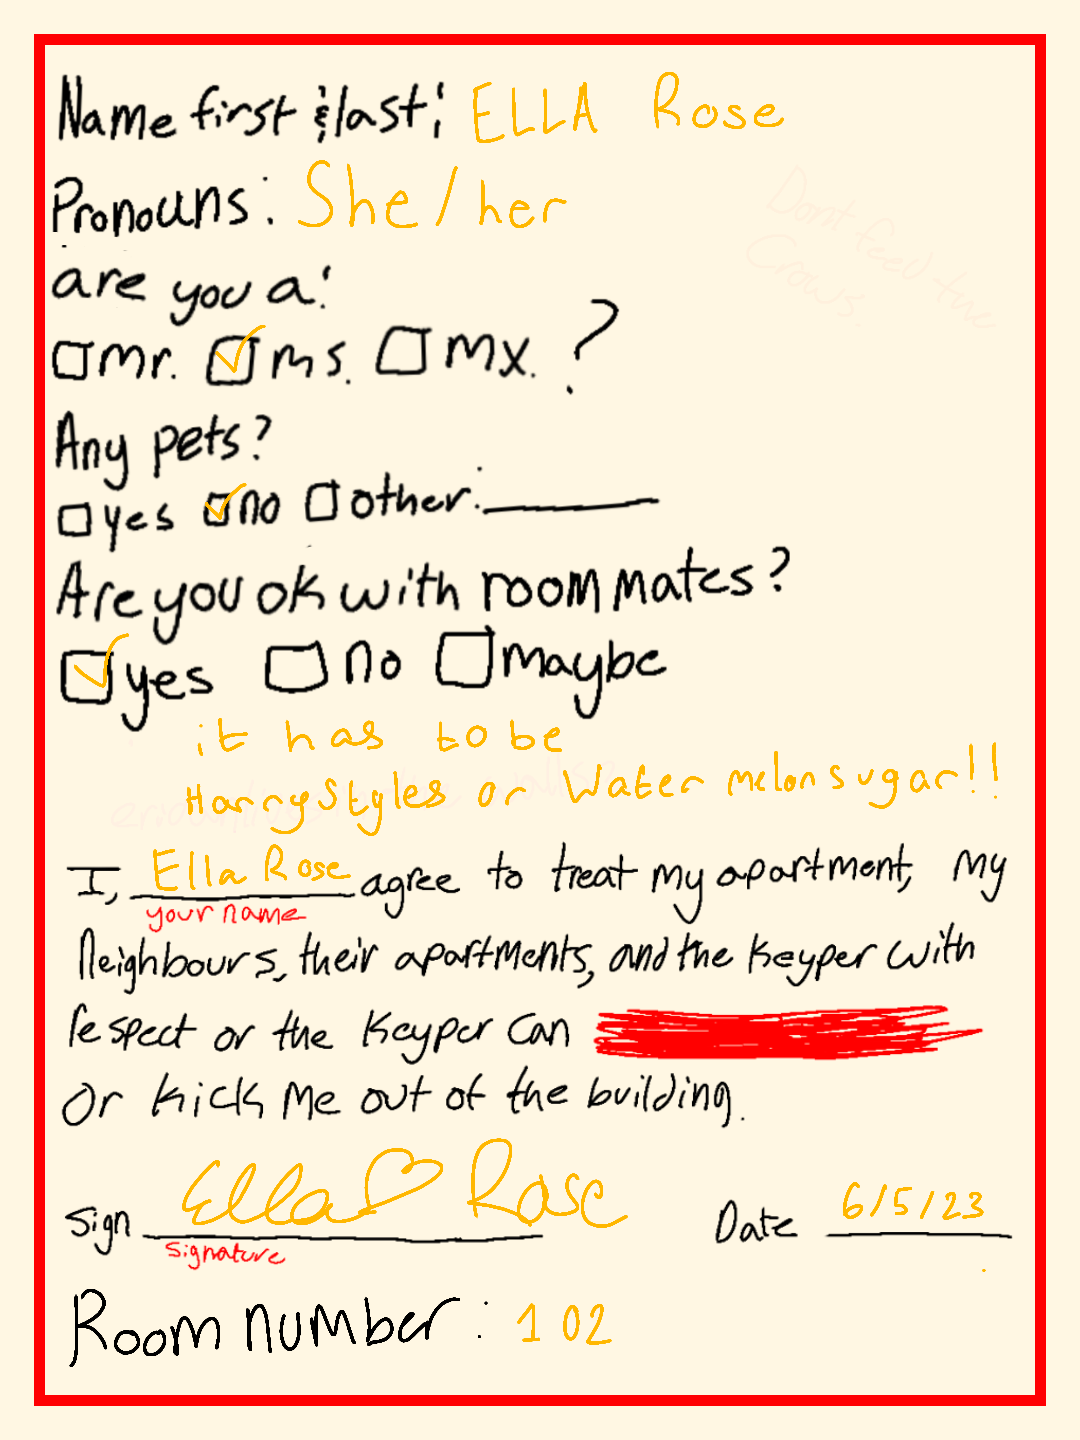 Name first & last: ELLA Rose
Pronouns: She/her
Dont feed the
Crows.
are you a:
mr. ms. mx. ?
Any pets?
yes no other:
Are you ok with roommates?
yes no maybe
it has to be
Harry Styles or Water melon sugar!!
I, Ella Rose agree to treat my apartment, my
your name
Neighbours, their apartments, and the Keyper with
respect or the Keyper can
Or kick me out of the building.
Sign Ella Rose Date 6/5/23
Signature
Room number: 102